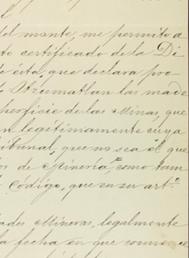 del monte, me permito a
to certificado de la Di
cita, que declara pro
Itzumatlan las made
perficie de las Minas, que
n legitimamente erija
ribunal, que no sea él que
de Minería, como tam
Código, que en su art.
ades Mineras, legalmente
la fecha en que